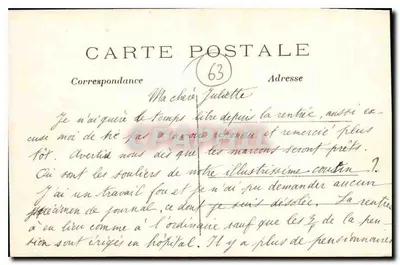 CARTE POSTALE
Correspondance
63
Adresse
Ma chère Juliette
Je n'ai guère de temps libre depuis la rentrée, aussi ex-
cuse moi de ne pas et remercié plus
tôt. Avertis nous dès que les marrons seront prêts.
Où sont les souliers de notre illustrissime cousin ?
J'ai un travail fou et je n'ai pu demander aucun
spécimen de journal, ce dont je suis désolée. La rentrée
a eu lieu comme à l'ordinaire sauf que les de la pen-
sion sont érigés en hôpital. Il y a plus de pensionnaires